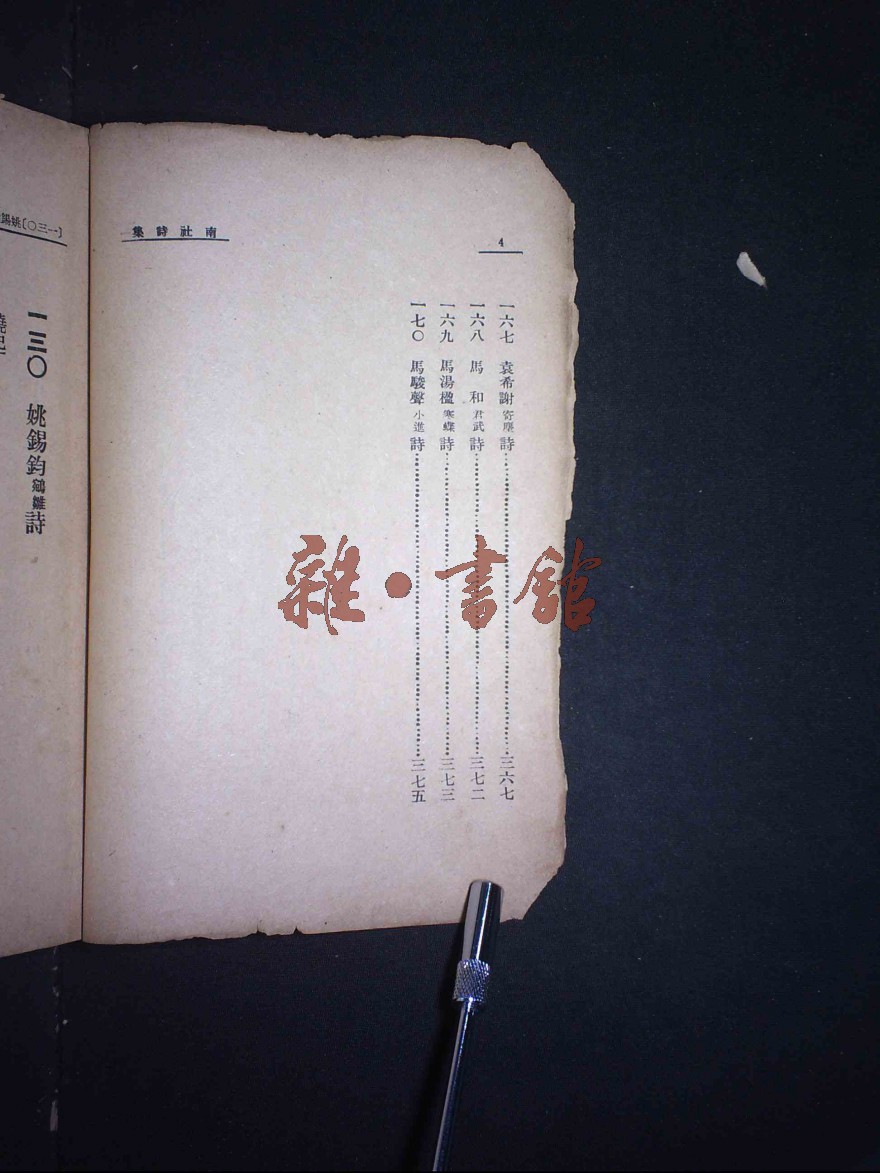 4
南社詩集
一六七 袁希謝寄塵詩……三六七
一六八 馬 和君武詩……三七二
一六九 馬湯楹寒蝶詩……三七三
一七〇 馬駿聲小進詩……三七五
雜·書館
〔一三〇〕姚錫
一三〇 姚錫鈞鵷雛詩